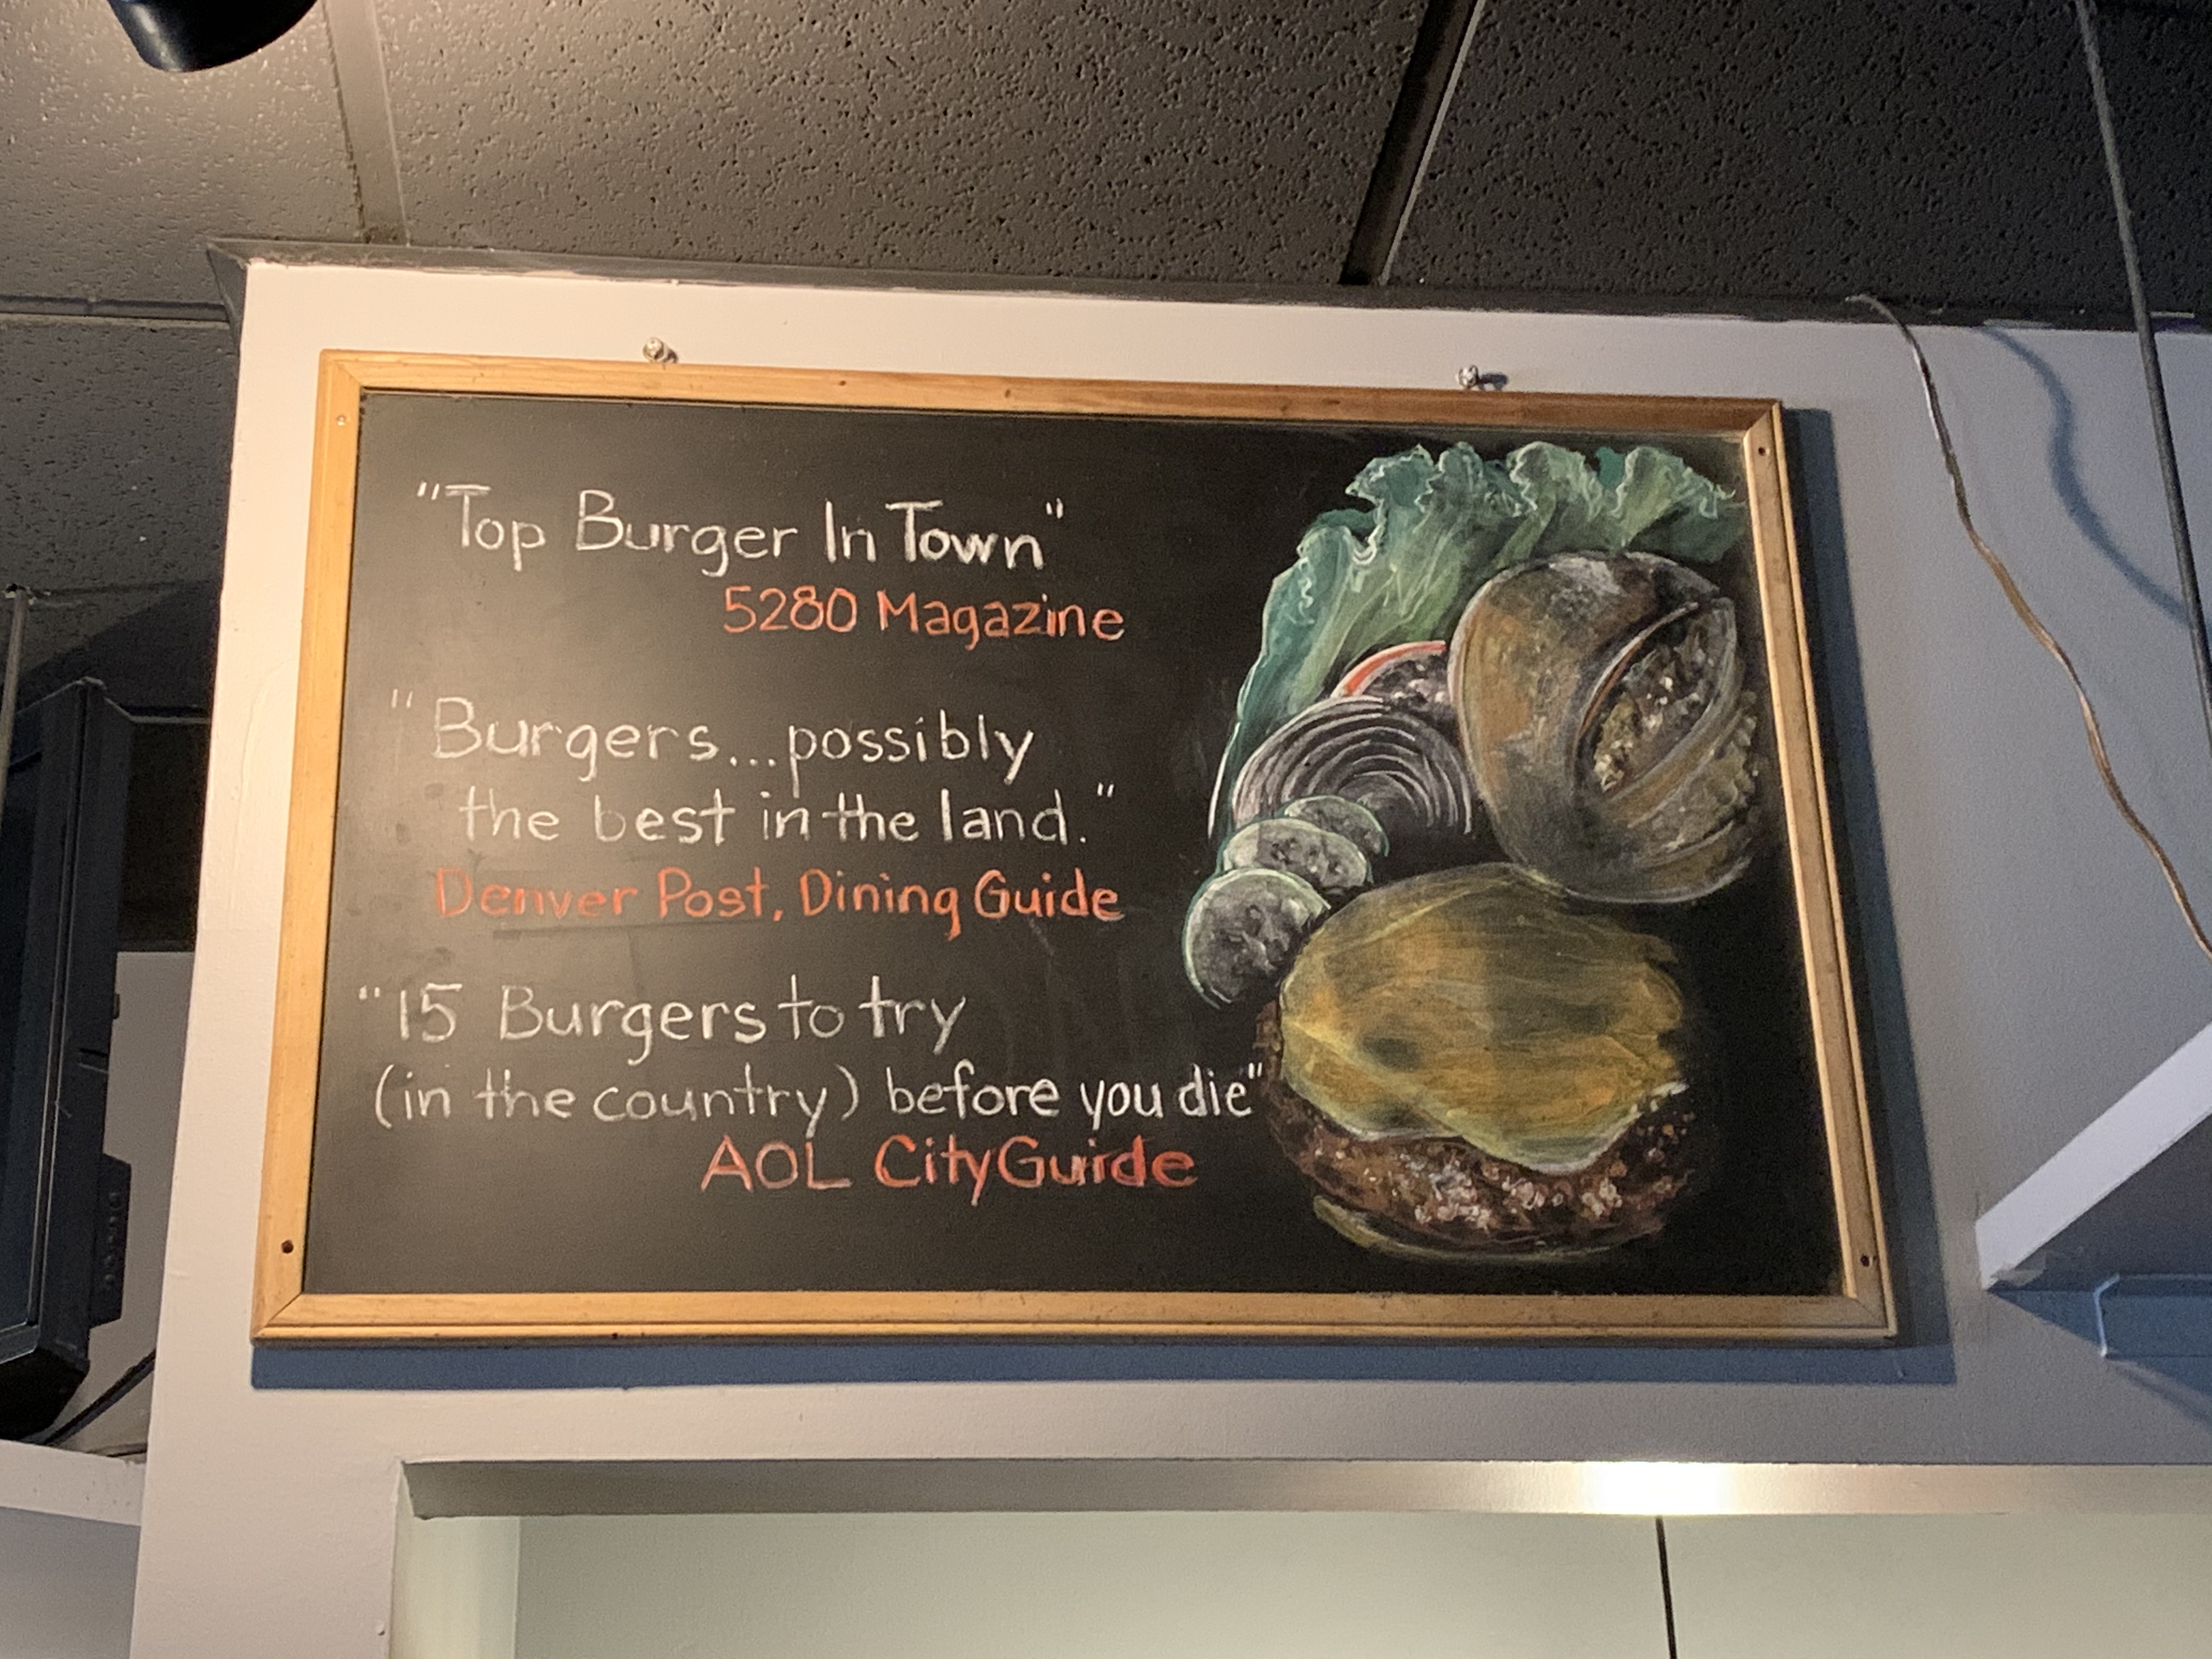 "Top Burger In Town"
5280 Magazine
"Burgers...possibly
the best in the land."
Denver Post, Dining Guide
"15 Burgers to try
(in the country) before you die"
AOL CityGuide